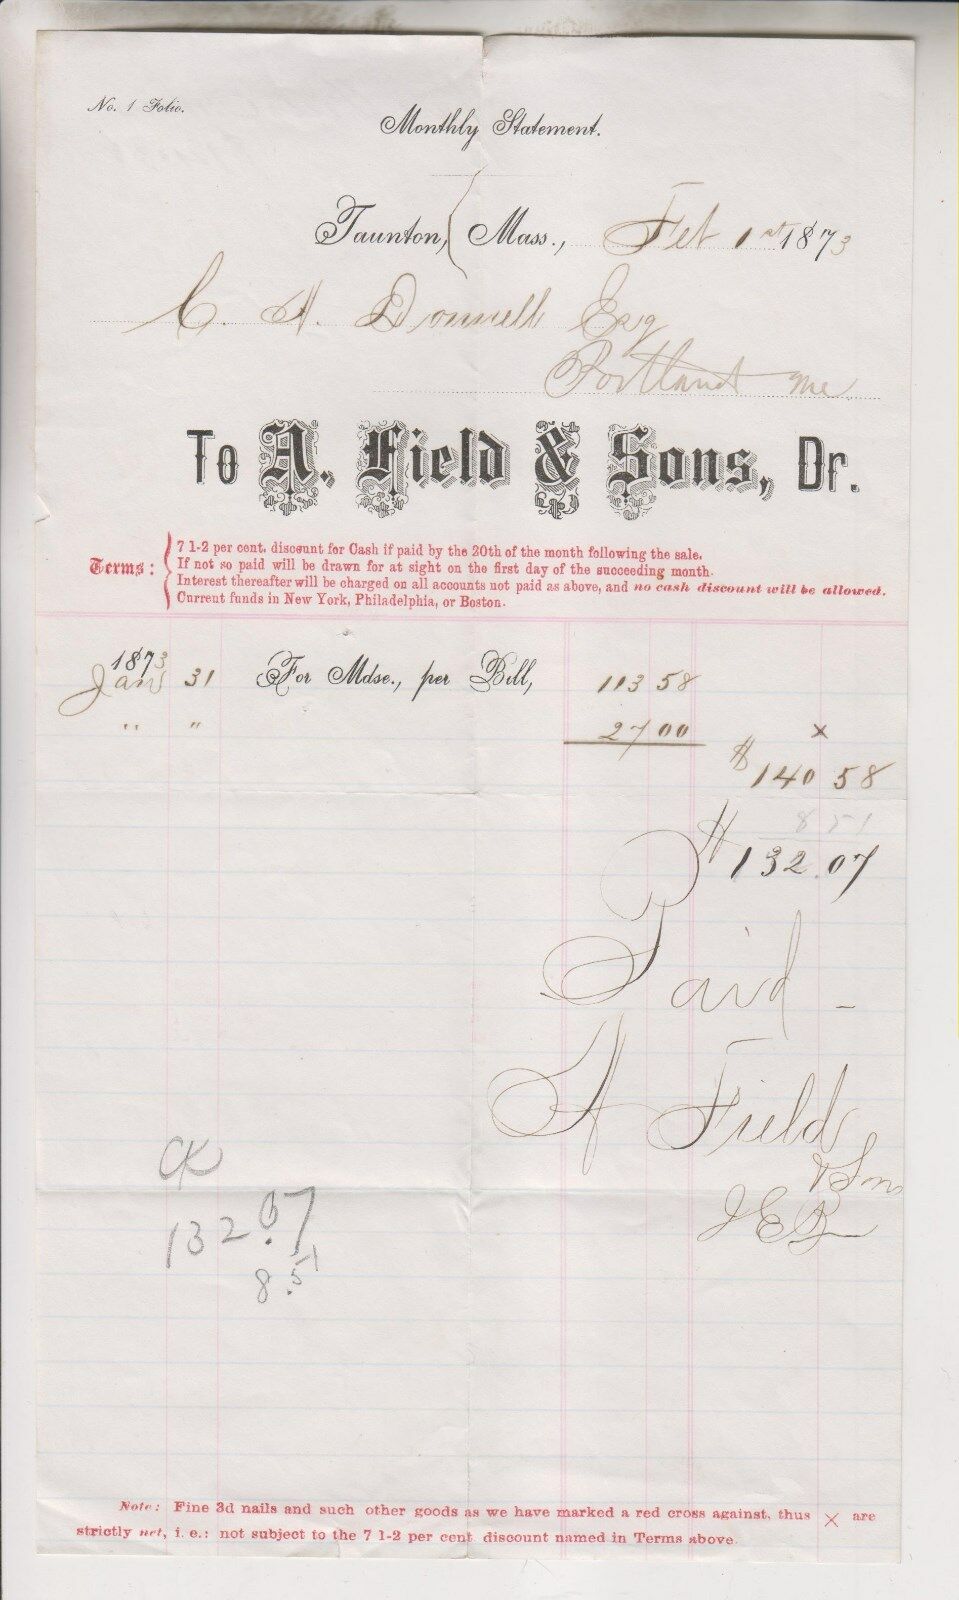 No. 1 Folio.
Monthly Statement.
Taunton, Mass., Feb 1st 1873
C. H. Donnell Esq
Portland Me
To A. Field & Sons, Dr.
Terms: 7 1-2 per cent. discount for Cash if paid by the 20th of the month following the sale.
If not so paid will be drawn for at sight on the first day of the succeeding month.
Interest thereafter will be charged on all accounts not paid as above, and no cash discount will be allowed.
Current funds in New York, Philadelphia, or Boston.
1873
Jan 31 For Mdse., per Bill, 113 58
" " 27 00 x
$ 140 58
8 51
$ 132.07
Paid -
A Field
& Sons
JEB
CK
132.07
8.51
Note: Fine 3d nails and such other goods as we have marked a red cross against, thus x are
strictly net, i. e.: not subject to the 7 1-2 per cent. discount named in Terms above.